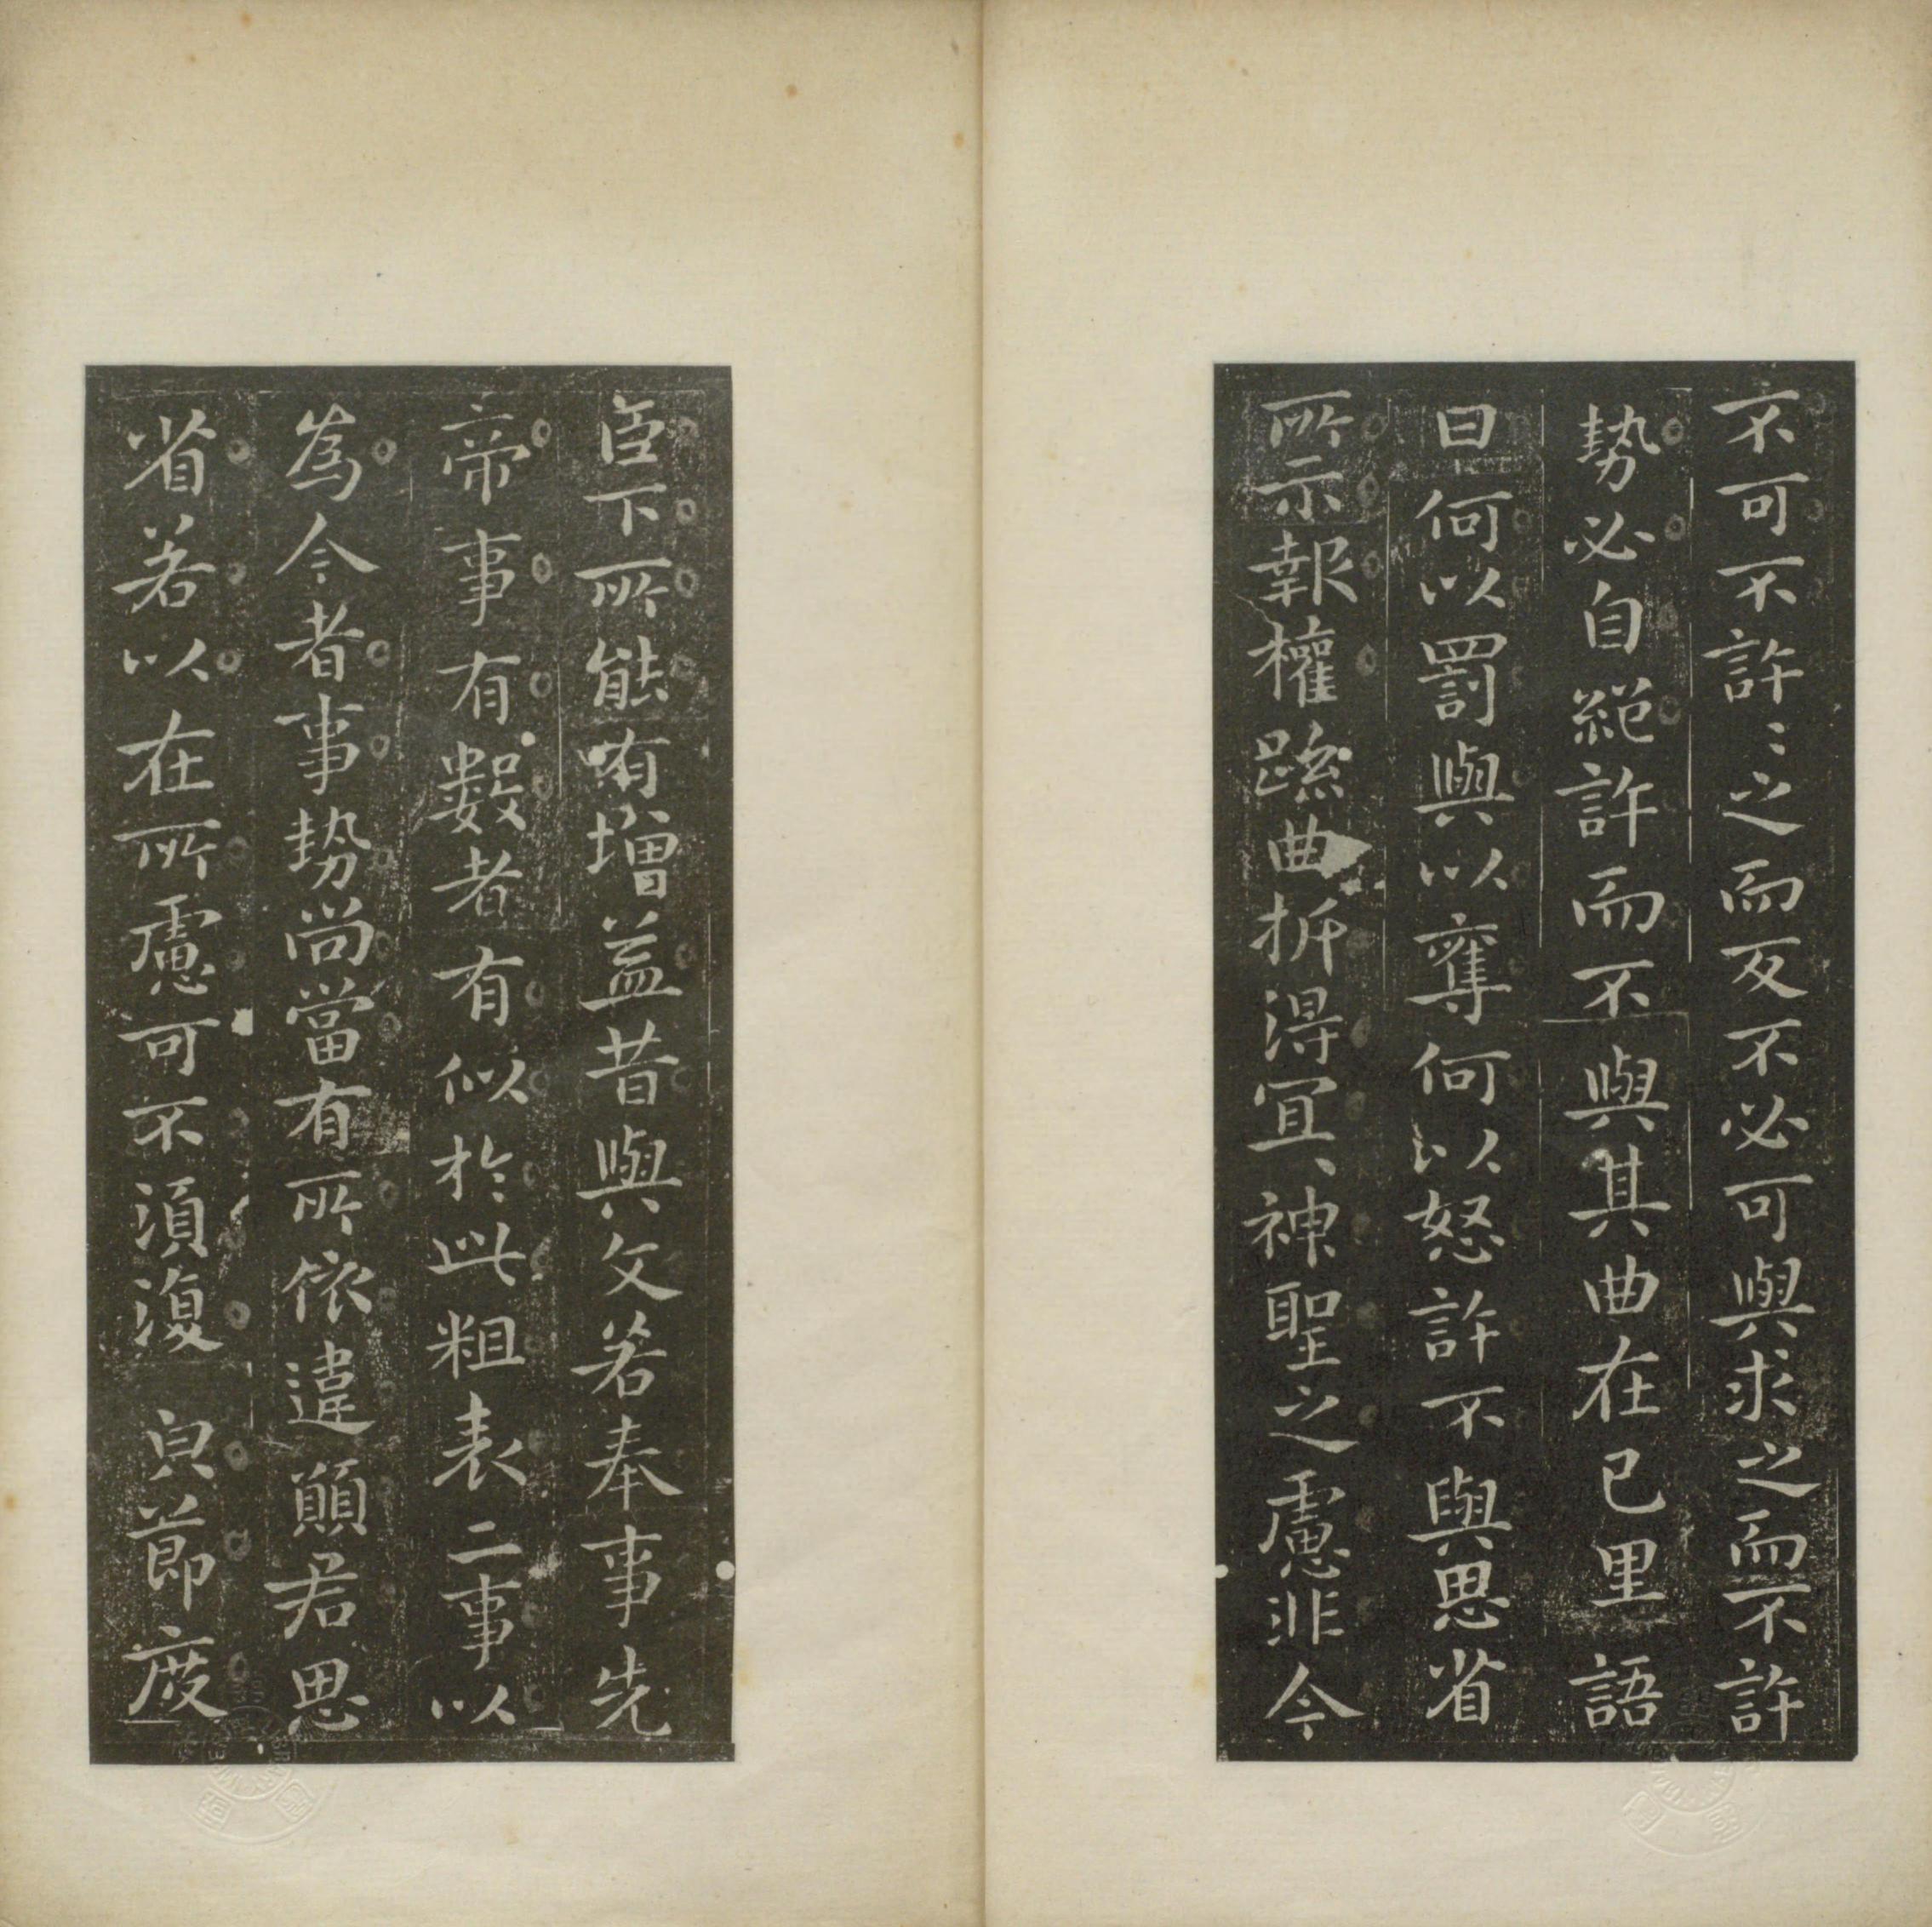 不可可不許許之而反不必可與求之而不許
勢必自絕許而不與其曲在己里語
曰何以罰與以奪何以怒許不與思省
所示報權疏曲折得宜神聖之慮非今
臣下所能有增益昔與文若奉事先
帝事有數者有似於此粗表二事以
為今者事勢尚當有所依違願君思
省若以在所慮可不須復㒵節度